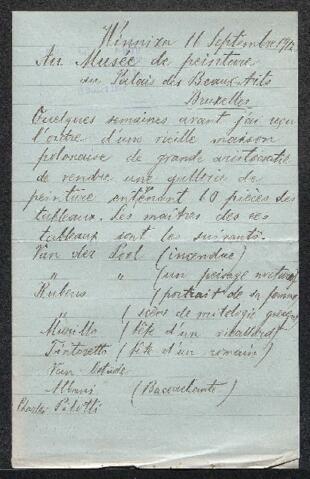 Winniza 11 Septembre 1912
Au Musée de peinture
au Palais des Beaux-Arts
Bruxelles
Quelques semaines avant j'ai reçu
l'ordre d'une vieille maison
polonaise de grande aristocratie
de vendre une gallerie de
peinture contenant 60 pièces des
tableaux. Les maitres des ces
tableaux sont les suivants:
Van der Poel (incendue)
" " (un peisage
Rubens (portrait de sa femme
" (scène de mitologie
Murillo (tête d'un
Tintoretto (tête d'un romain)
Van
Albani (Baccachante)
Charles